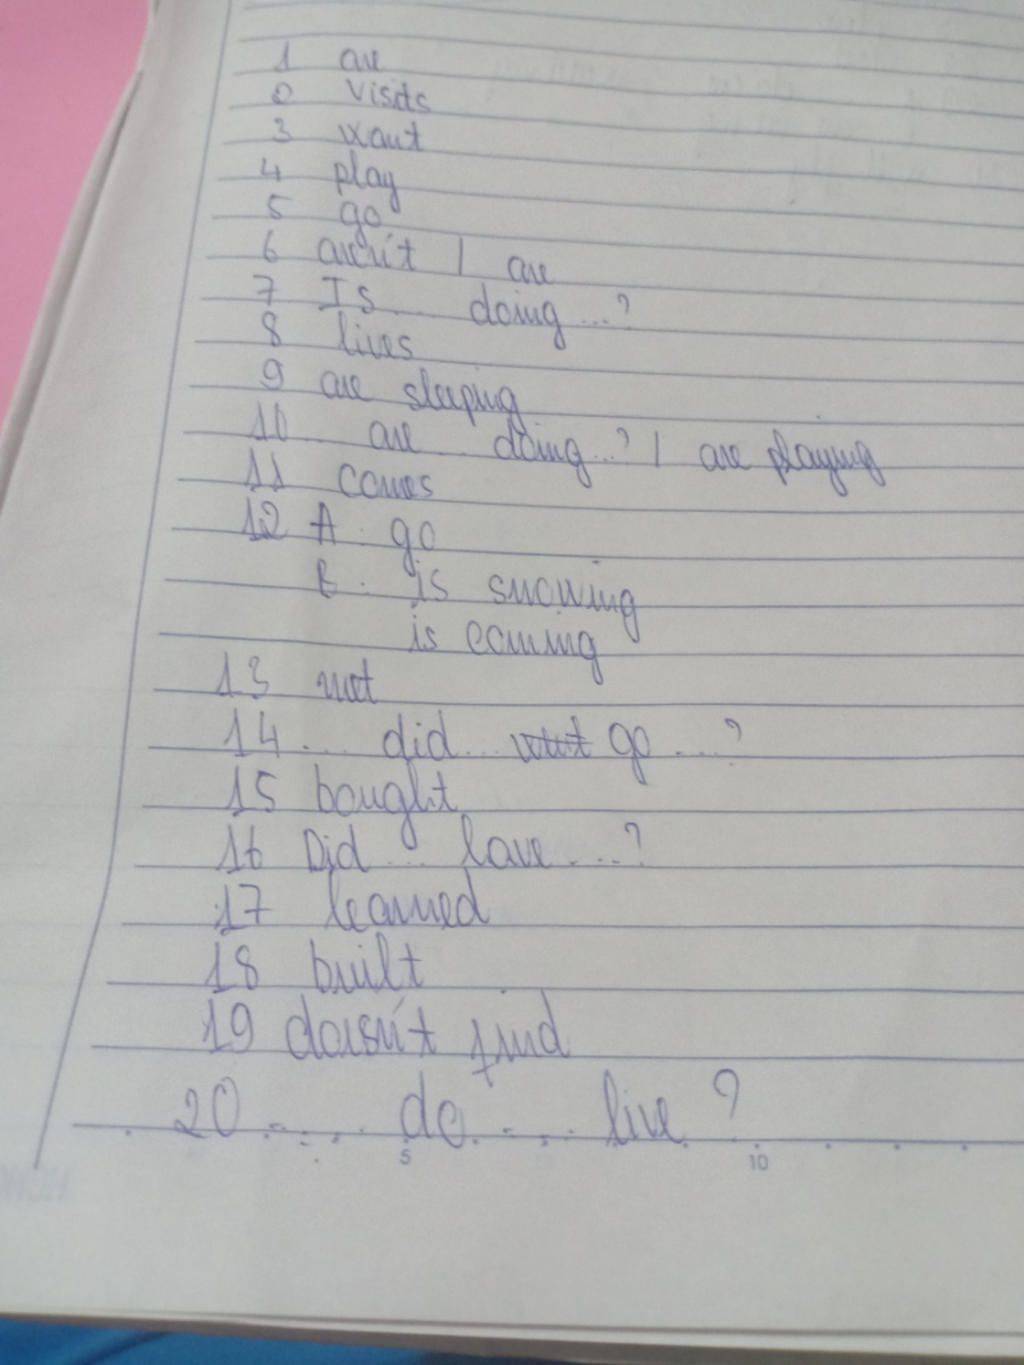 1 are
2 visits
3 want
4 play
5 go
6 aren't / are
7 Is .... doing ...?
8 lives
9 are sleeping
10 ... are ... doing ..? / are playing
11 comes
12 A. go
B. is snowing
is coming
13 not
14 .... did ... go ....?
15 bought
16 Did .... love ....?
17 learned
18 built
19 doesn't find
20 ..... do ..... live ?
5 10